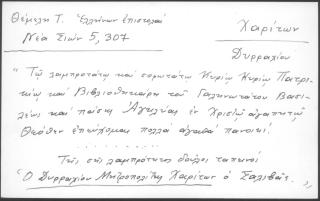 Θέμελη Τ. Ἑλλήνων ἐπιστολαί
Νέα Σιών 5, 307
Χαρίτων
Δυρραχίου
"Τῷ λαμπροτάτῳ καί σοφωτάτῳ Κυρίῳ Κυρίῳ Πατρι-
κίῳ καί Βιβλιοθηκαρίῳ τοῦ Γαληνοτάτου Βασι-
λέως καί πάσης Ἀγγλίας ἐν Χριστῷ ἀγαπητῷ
Θεόθεν ἐπεύχομαι πολλά ἀγαθά παντοῖα!
Τῆς σῆς λαμπρότητος δοῦλος ταπεινός
Ὁ Δυρραχίου Μητροπολίτης Χαρίτων ὁ Σαλιβᾶς.,,